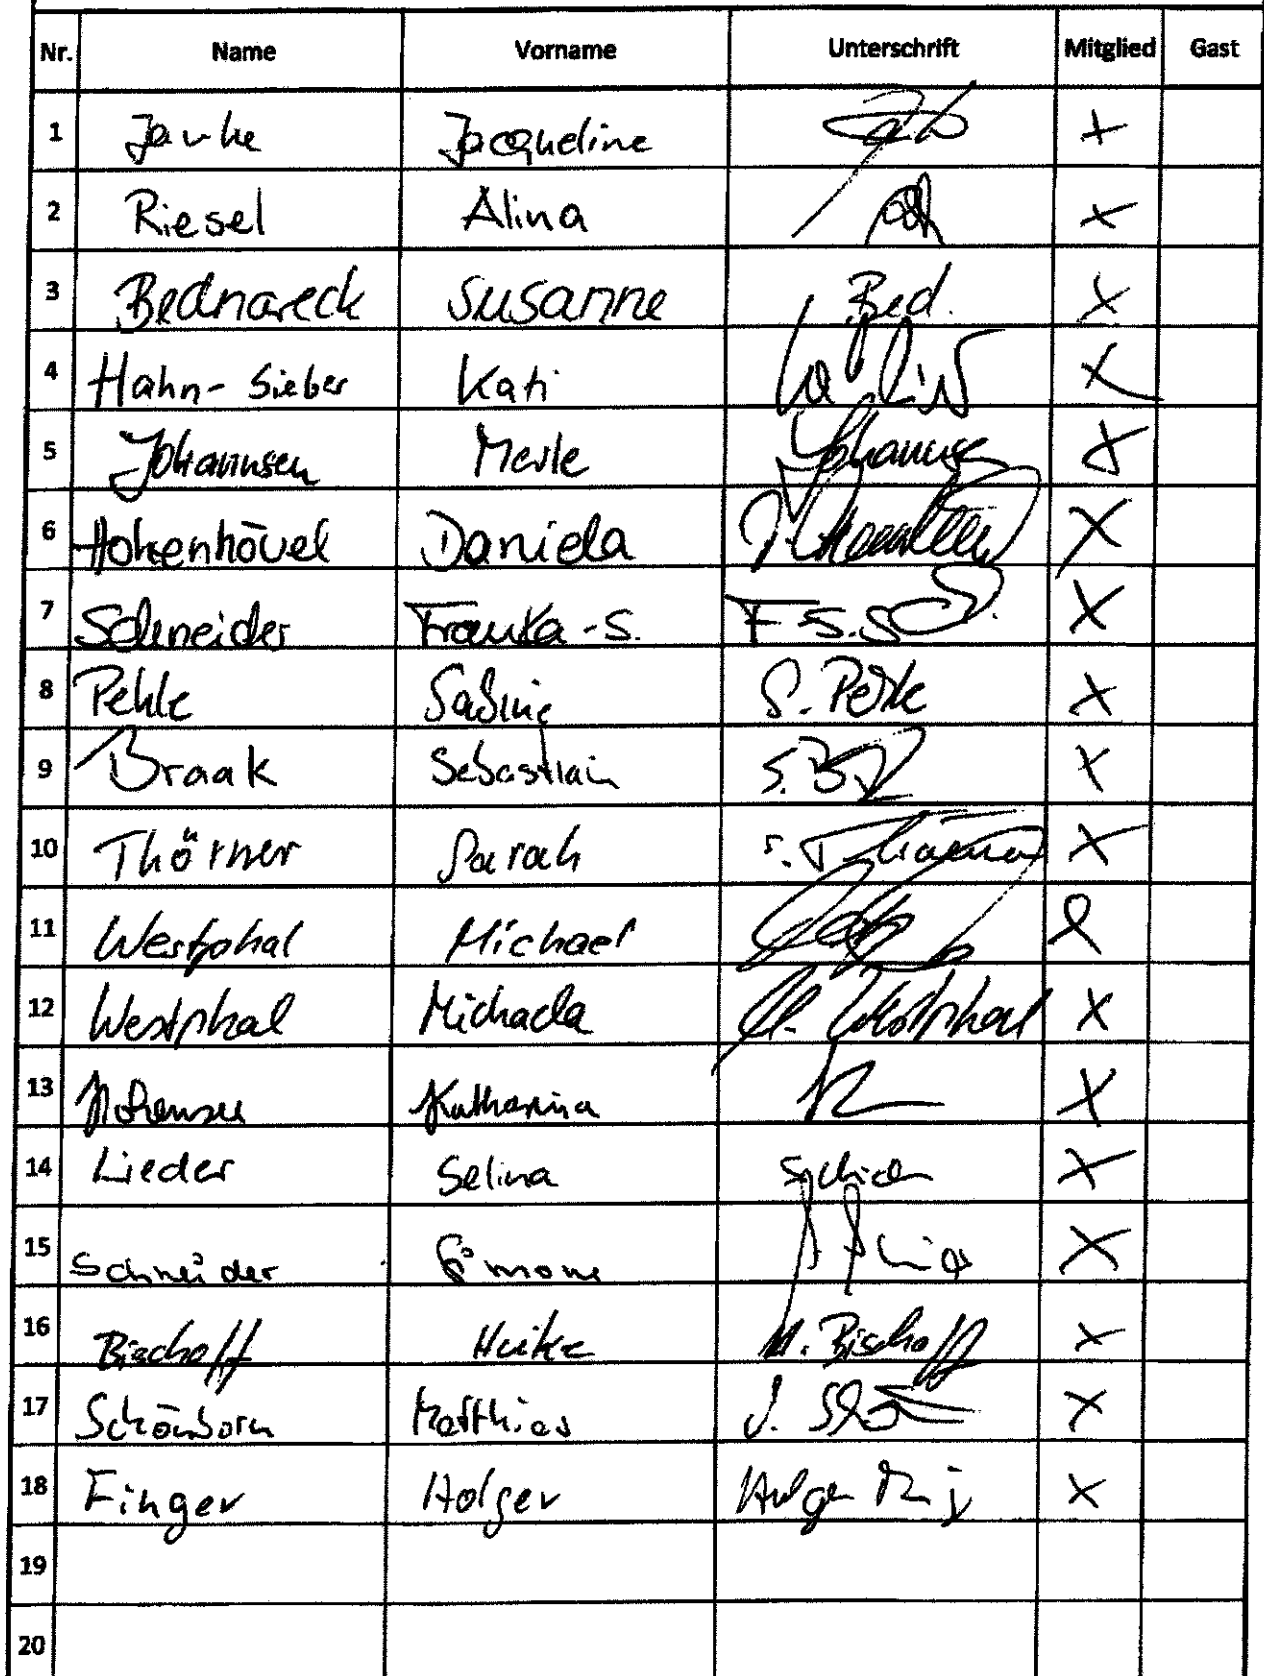 Nr. Name Vorname Unterschrift Mitglied Gast
1 Janke Jacqueline X
2 Riesel Alina X
3 Bednareck Susanne Bed. X
4 Hahn-Sieber Kati X
5 Johannsen Merle Johannse X
6 Hohenhövel Daniela X
7 Schneider Franka-S. F-S.S X
8 Pehle Sabine S. Pehle X
9 Braak Sebastian X
10 Thörner Sarah S. Thörner X
11 Westphal Michael X
12 Westphal Michaela M. Westphal X
13 Hohensee Katharina X
14 Lieder Selina X
15 Schneider Simone X
16 Bischoff Heike H. Bischoff X
17 Schönborn Matthias X
18 Finger Holger Holger X
19
20